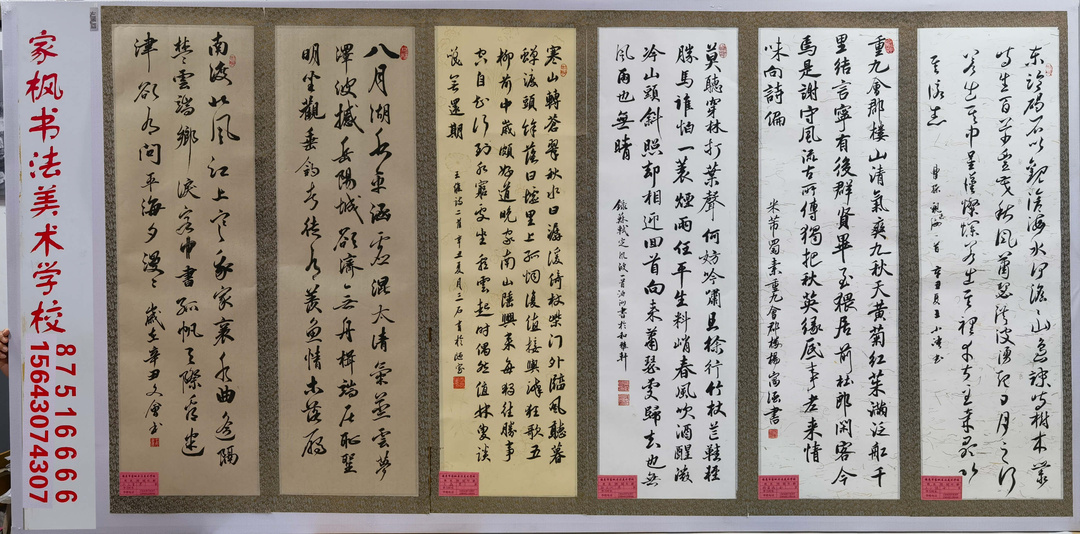 家枫书法美术学校
87516666
15643074307
东临碣石以觀滄海水何澹〃山島竦峙樹木叢
生百草豐茂秋風蕭瑟洪波湧起日月之行
若出其中星漢燦爛若出其裡幸甚至哉歌以
詠志
辛丑夏王小濤書
重九會郡樓山清氣爽九秋天黄菊红茱滿泛船千
里結言寧有後群賢畢至猥居前杜郎閑客今
焉是謝守風流古所傳獨把秋英緣底事老来情
味向詩偏
米芾蜀素重九會郡樓楊富法書
莫聽穿林打葉聲何妨吟嘯且徐行竹杖芒鞋輕
勝馬誰怕一蓑煙雨任平生料峭春風吹酒醒微
冷山頭斜照却相迎回首向来蕭瑟處歸去也無
風雨也無晴
錄蘇軾定風波一首書於和雅軒
寒山轉蒼翠秋水日潺湲倚杖柴門外臨風聽暮
蟬渡頭餘落日墟里上孤烟復值接輿醉狂歌五
柳前中歲頗好道晚家南山陲興来每獨往勝事
空自知行到水窮處坐看雲起時偶然值林叟談
笑無還期
王維詩二首辛丑夏月三石書於
八月湖水平涵虚混太清氣蒸雲夢
澤波撼岳陽城欲濟無舟楫端居耻聖
明坐觀垂釣者徒有羡魚情木落雁
南渡北風江上寒我家襄水曲遥隔
楚雲端鄉淚客中盡孤帆天際看迷
津欲有問平海夕漫〃
歲在辛丑文會書